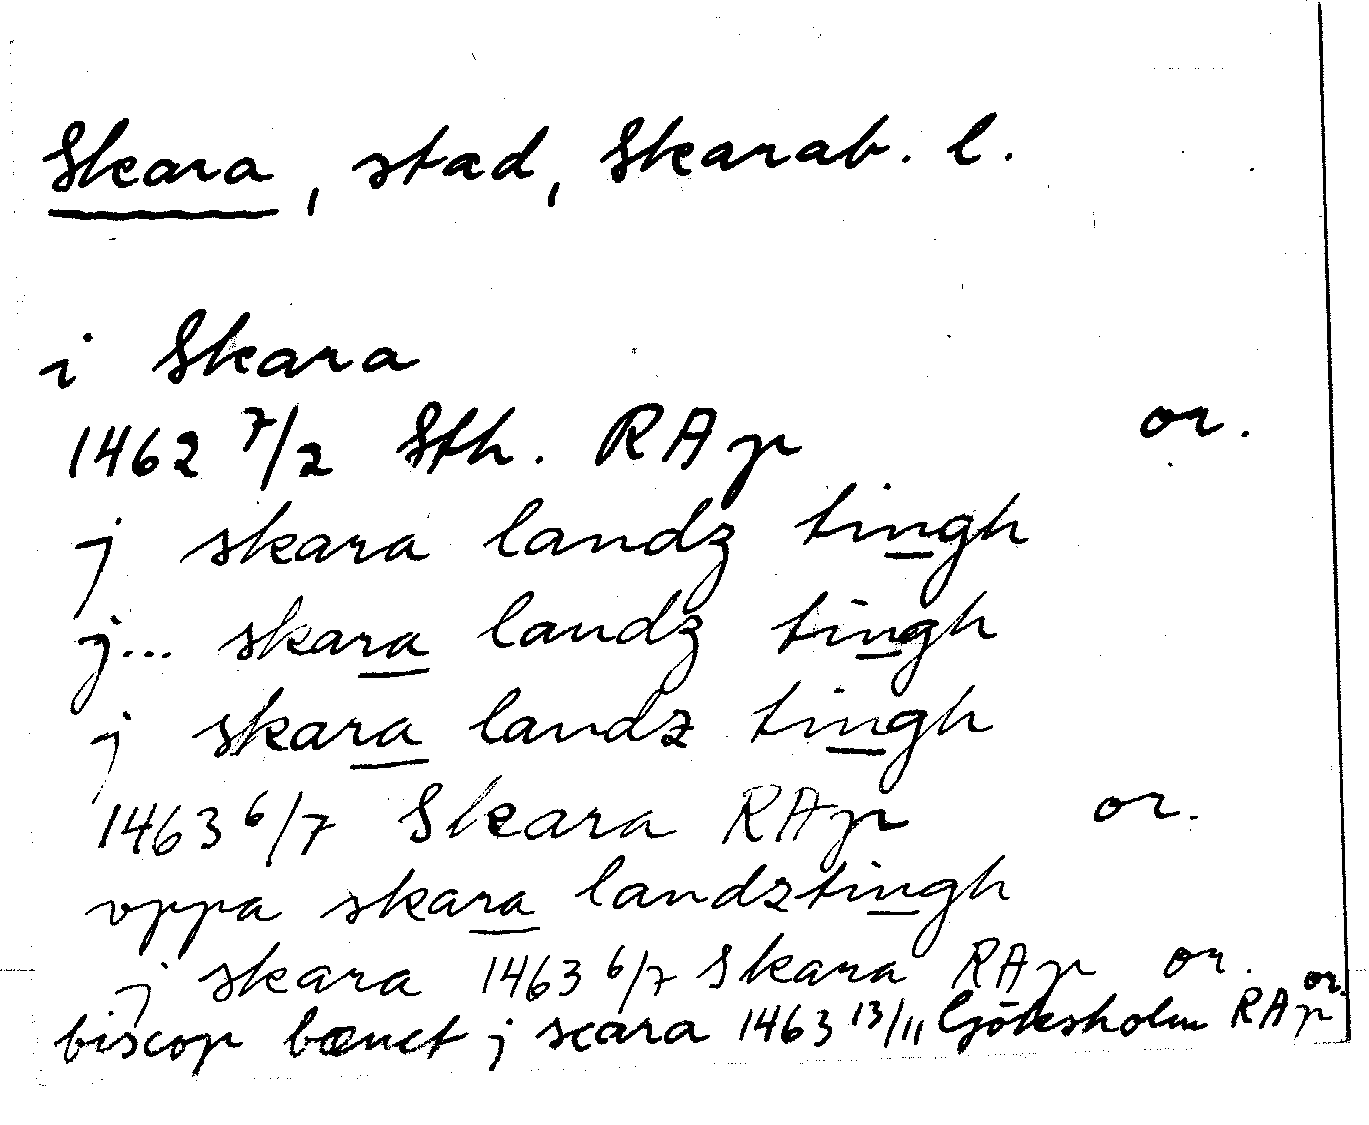 Skara, stad, Skarab. l.
i Skara
1462 7/2 Sth. RAp or.
j skara landz tingh
j... skara landz tingh
j skara landz tingh
1463 6/7 Skara RAp or.
vppa skara landztingh
j skara 1463 6/7 Skara RAp or.
biscop bænct j scara 1463 13/11 Götesholm RAp or.